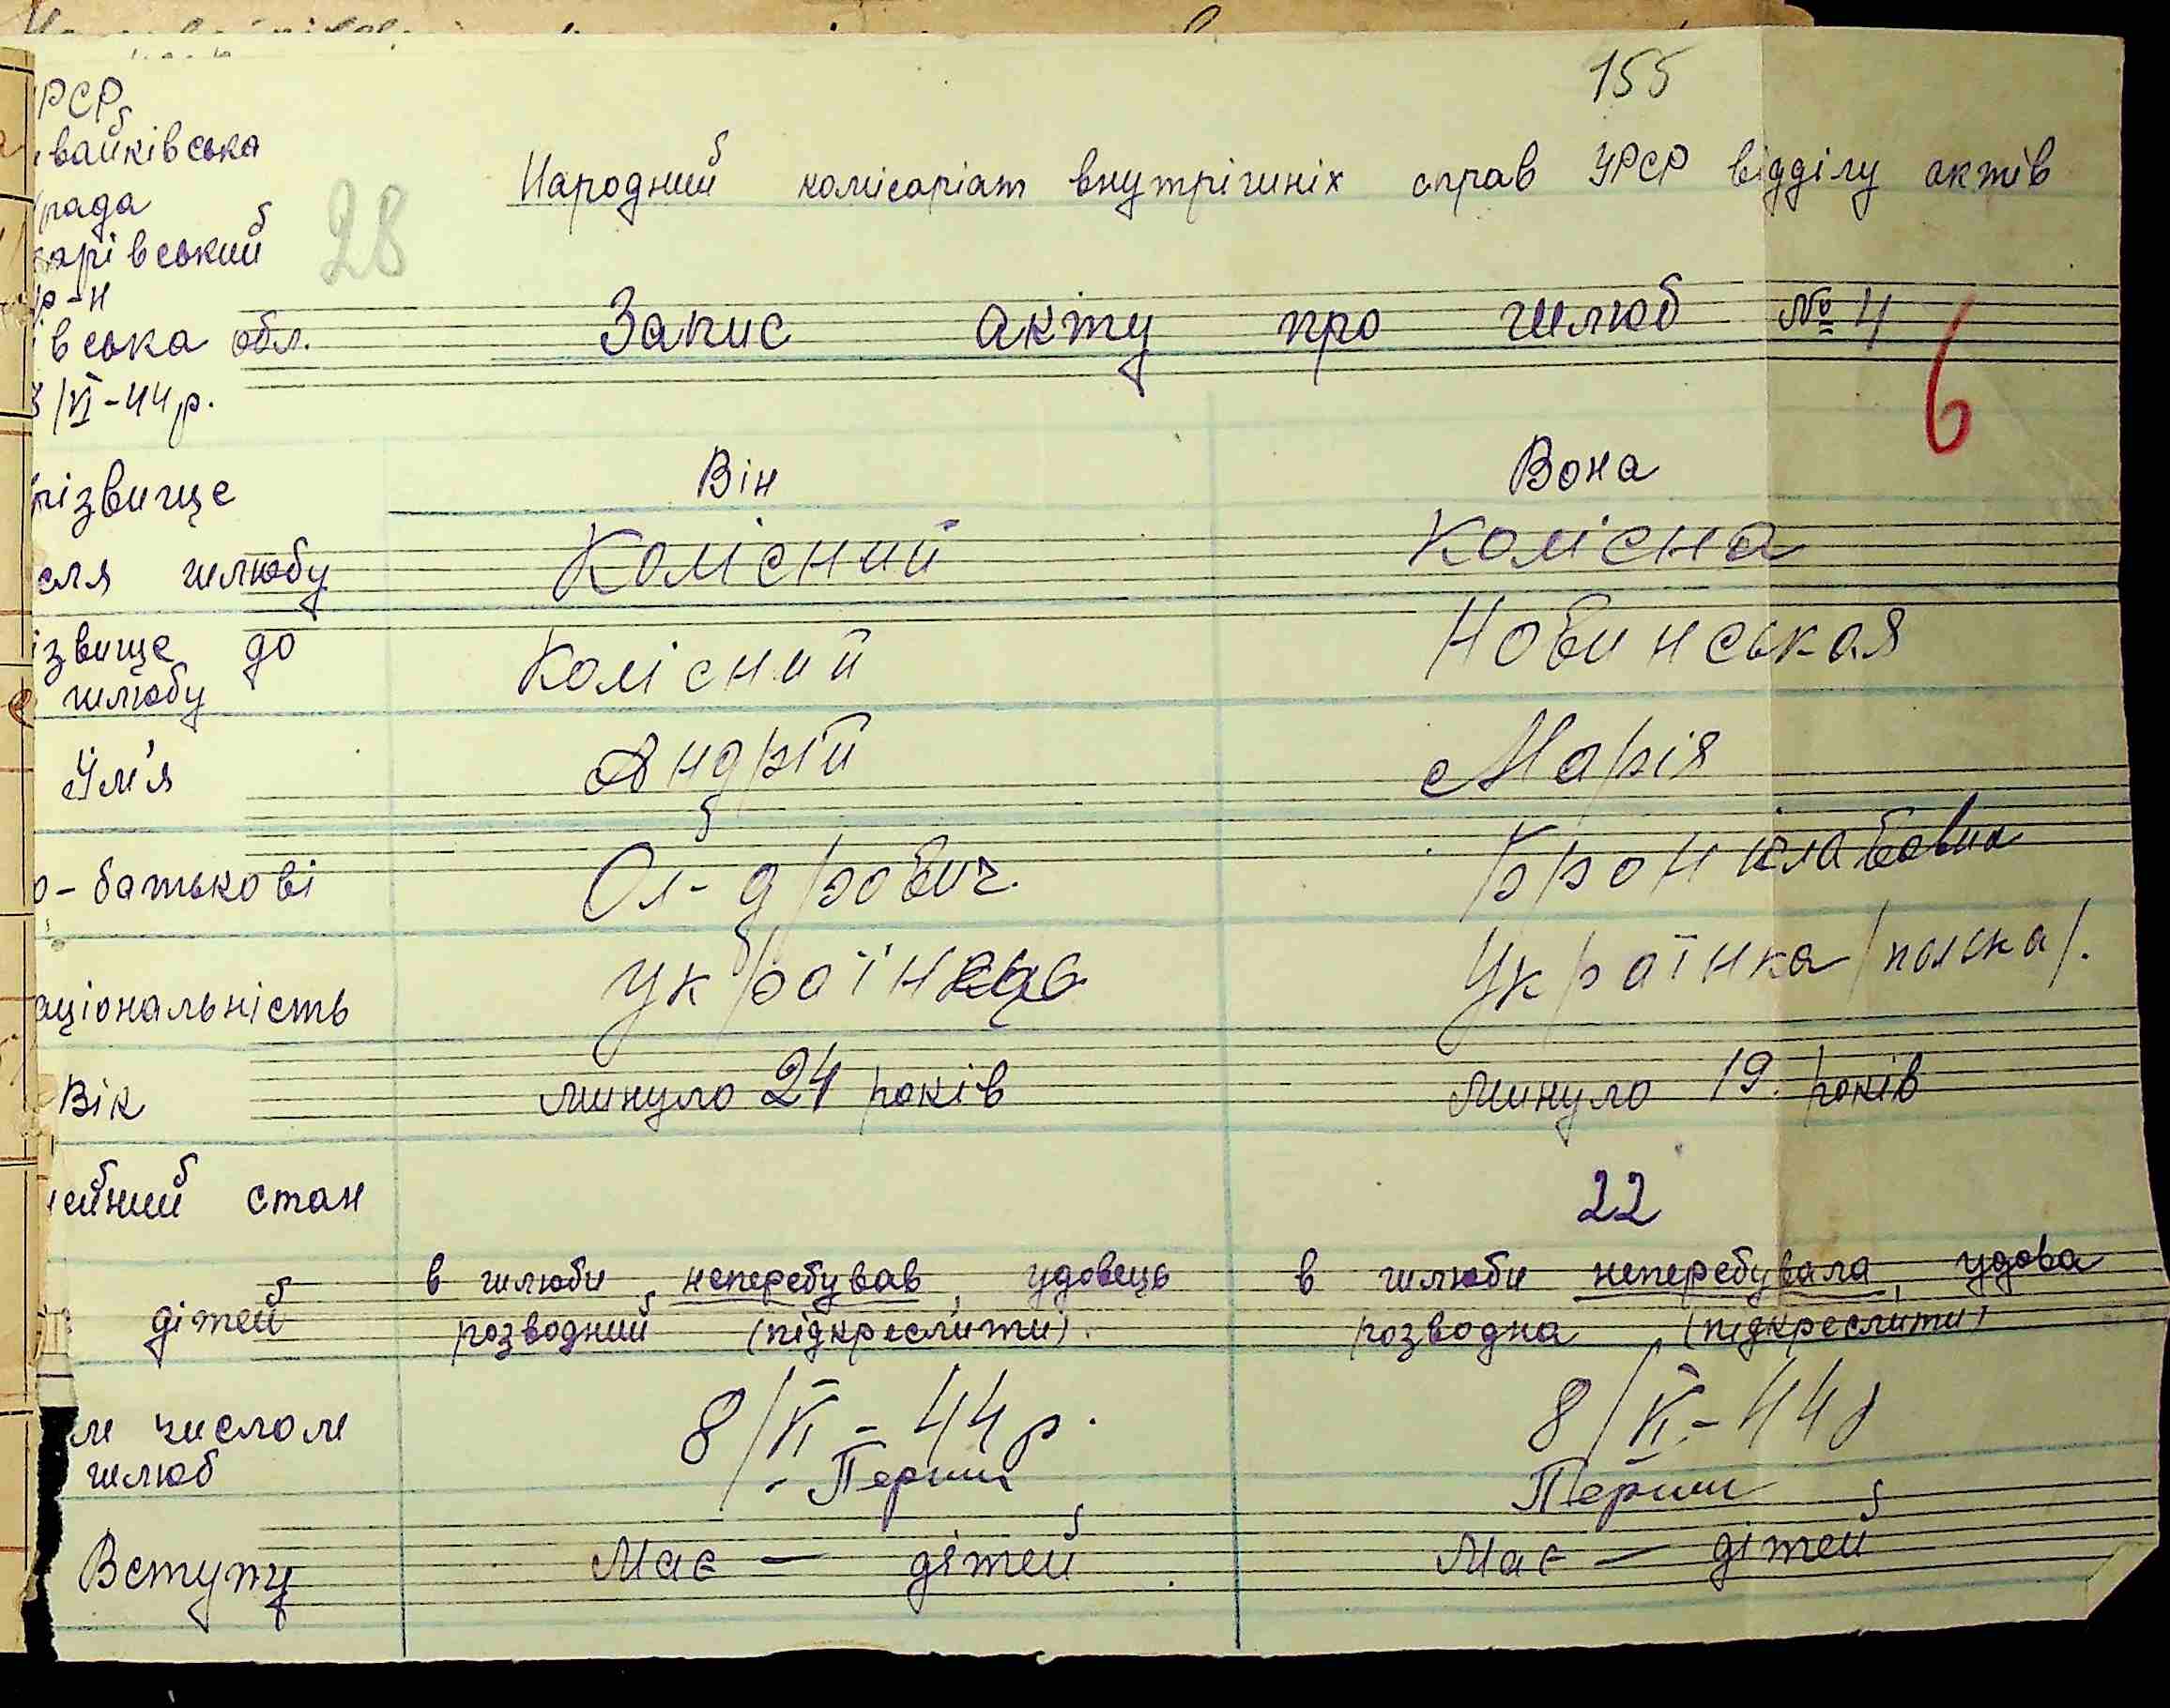 155
РСР
вайківська
рада
арівський
р-н
івська обл.
3/VI-44р.
28
Народний комісаріат внутрішніх справ УРСР відділу актів
Запис акту про шлюб № 4
6
Він Вона
різвище
сля шлюбу Колісний Колісна
ізвище до
шлюбу Колісний Новинськая
Ім'я Андрій Марія
о-батькові Ол-дрович. Броніславовна
аціональність Українець Українка /полька/.
Вік минуло 24 років минуло 19. років
ейний стан 22
в шлюби неперебував, удовець в шлюби неперебувала, удова
дітей розводний (підкреслити). розводна (підкреслити)
м числом 8/VI-44р. 8/VI-44р
шлюб - Перши Перши
Вступу Має — дітей Має — дітей